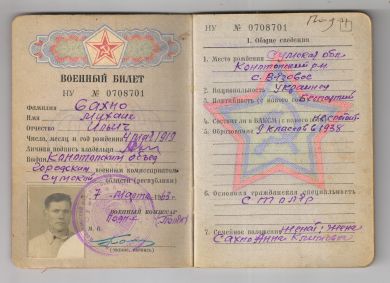 ВОЕННЫЙ БИЛЕТ
НУ № 0708701
Фамилия Сахно
Имя Михаил
Отчество Ильич
Число, месяц и год рождения 1919
Личная подпись владельца
Выдан Конотопским объед
городским военным комиссариатом
Сумской области (республики)
7 Марта 1963 г.
военный комиссар
М. П.
НУ № 0708701
I. Общие сведения
1. Место рождения Сумская обл.
Конотопский р-н
с. Вязовое
2. Национальность Украинец
3. Партийность (с какого года) беспартийн
4. Состоит ли в ВЛКСМ (с какого года) не состоит
5. Образование 4 классов в 1938
6. Основная гражданская специальность
столяр
7. Семейное положение Женат: Жена
Сахно Анна